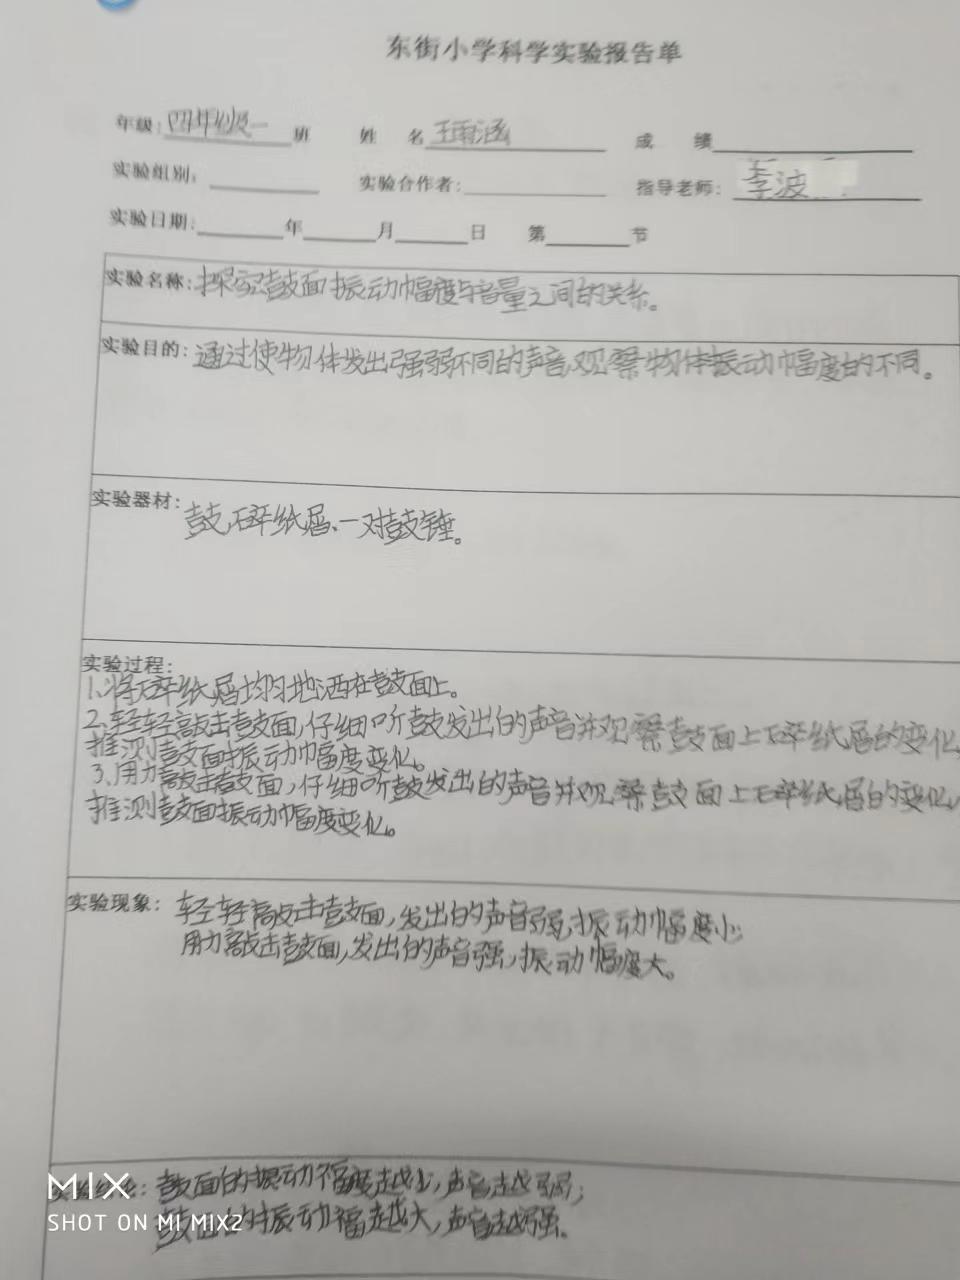 东街小学科学实验报告单
年级:四年级一班 姓名王雨涵 成绩
实验组别: 实验合作者: 指导老师:李波
实验日期: 年 月 日 第 节
实验名称:探究鼓面振动幅度与音量之间的关系。
实验目的:通过使物体发出强弱不同的声音,观察物体振动幅度的不同。
实验器材:鼓、碎纸屑、一对鼓锤。
实验过程:
1.将碎纸屑均匀地洒在鼓面上。
2.轻轻敲击鼓面,仔细听鼓发出的声音并观察鼓面上碎纸屑的变化,
推测鼓面振动幅度变化。
3.用力敲击鼓面,仔细听鼓发出的声音并观察鼓面上碎纸屑的变化,
推测鼓面振动幅度变化。
实验现象:轻轻敲击鼓面,发出的声音弱,振动幅度小;
用力敲击鼓面,发出的声音强,振动幅度大。
实验结论:鼓面的振动幅度越小,声音越弱;
鼓面的振动幅越大,声音越强。
MIX
SHOT ON MI MIX2